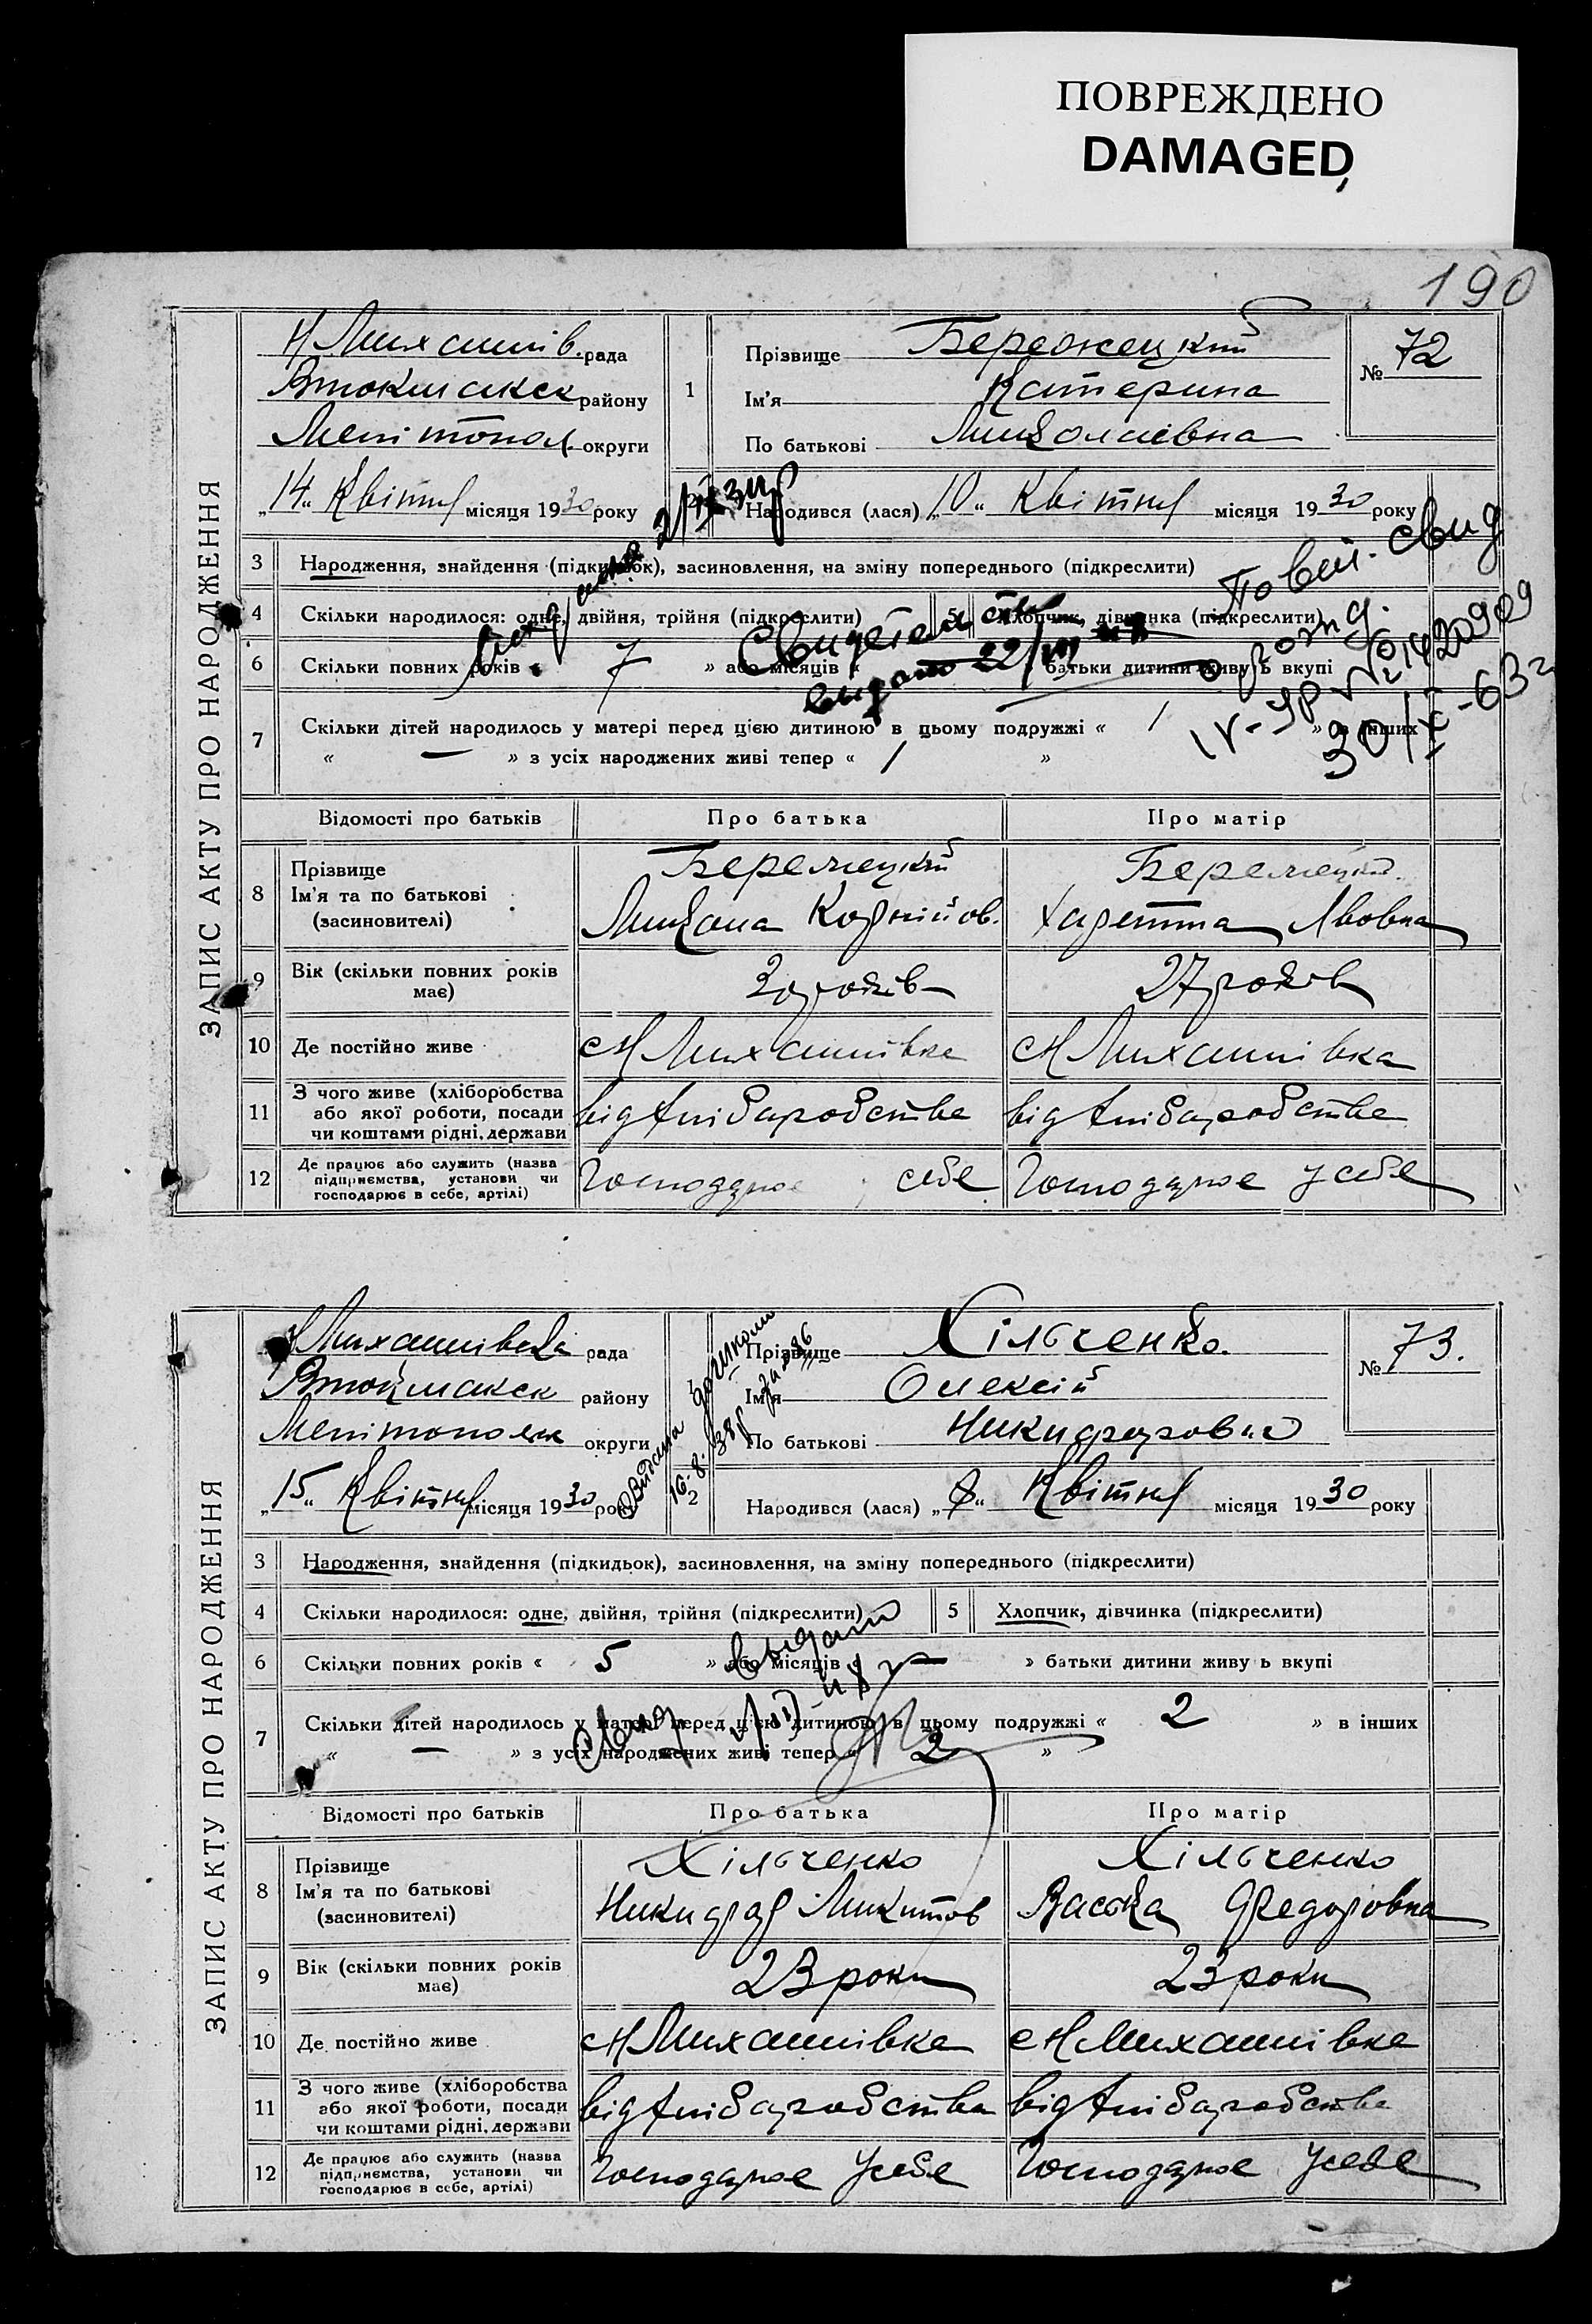 ПОВРЕЖДЕНО
DAMAGED
190
ЗАПИС АКТУ ПРО НАРОДЖЕННЯ
Н Михайлів. рада
Втокмакск району
Мелітопол. округи
„14“ Квітня місяця 1930 року
1
Прізвище Бережецкий
Ім'я Катерина
По батькові Миколаівна
№ 72
Народився (лася) „10“ Квітня місяця 1930 року
3 Народження, знайдення (підкидьок), засиновлення, на зміну попереднього (підкреслити)
4 Скільки народилося: одне, двійня, трійня (підкреслити) 5 Хлопчик, дівчинка (підкреслити)
6 Скільки повних років « 7 » або місяців « батьки дитини живу ь вкупі
7 Скільки дітей народилось у матері перед цією дитиною в цьому подружжі « 1 » в інших
« — » з усіх народжених живі тепер « 1 »
Свидетельство
выдано 22/III
Повт. свид
о рожд.
IV-ЯР № 1420909
30/IX-63г
Відомості про батьків Про батька Про матір
8 Прізвище
Ім'я та по батькові
(засиновителі)
Бережецкий
Микола Корнійов.
Бережецкий.
Харетина Львовна
9 Вік (скільки повних років
має)
30 років
27 років
10 Де постійно живе
с Н Михайлівка
с Н Михайлівка
11 З чого живе (хліборобства
або якої роботи, посади
чи коштами рідні, держави
від хліборобства
від хліборобства
12 Де працює або служить (назва
підприємства, установи чи
господарює в себе, артілі)
Господарює у себе
Господарює у себе
ЗАПИС АКТУ ПРО НАРОДЖЕННЯ
Н Михайлівска рада
Втокмакск району
Мелітопольк округи
„15“ Квітня місяця 1930 року
Прізвище Хільченко.
Ім'я Олексій
По батькові Никифорович
№ 73.
2 Народився (лася) „8“ Квітня місяця 1930 року
16.8.38р
3 Народження, знайдення (підкидьок), засиновлення, на зміну попереднього (підкреслити)
4 Скільки народилося: одне, двійня, трійня (підкреслити) 5 Хлопчик, дівчинка (підкреслити)
6 Скільки повних років « 5 » або місяців « » батьки дитини живу ь вкупі
7 Скільки дітей народилось у матері перед цією дитиною в цьому подружжі « 2 » в інших
« — » з усіх народжених живі тепер « 2 »
Свид выдан
Відомості про батьків Про батька Про матір
8 Прізвище
Ім'я та по батькові
(засиновителі)
Хільченко
Никифор Микитов
Хільченко
Васска Федоровна
9 Вік (скільки повних років
має)
23 роки
23 роки
10 Де постійно живе
с Н Михайлівка
с Н Михайлівка
11 З чого живе (хліборобства
або якої роботи, посади
чи коштами рідні, держави
від хліборобства
від хліборобства
12 Де працює або служить (назва
підприємства, установи чи
господарює в себе, артілі)
Господарює у себе
Господарює у себе